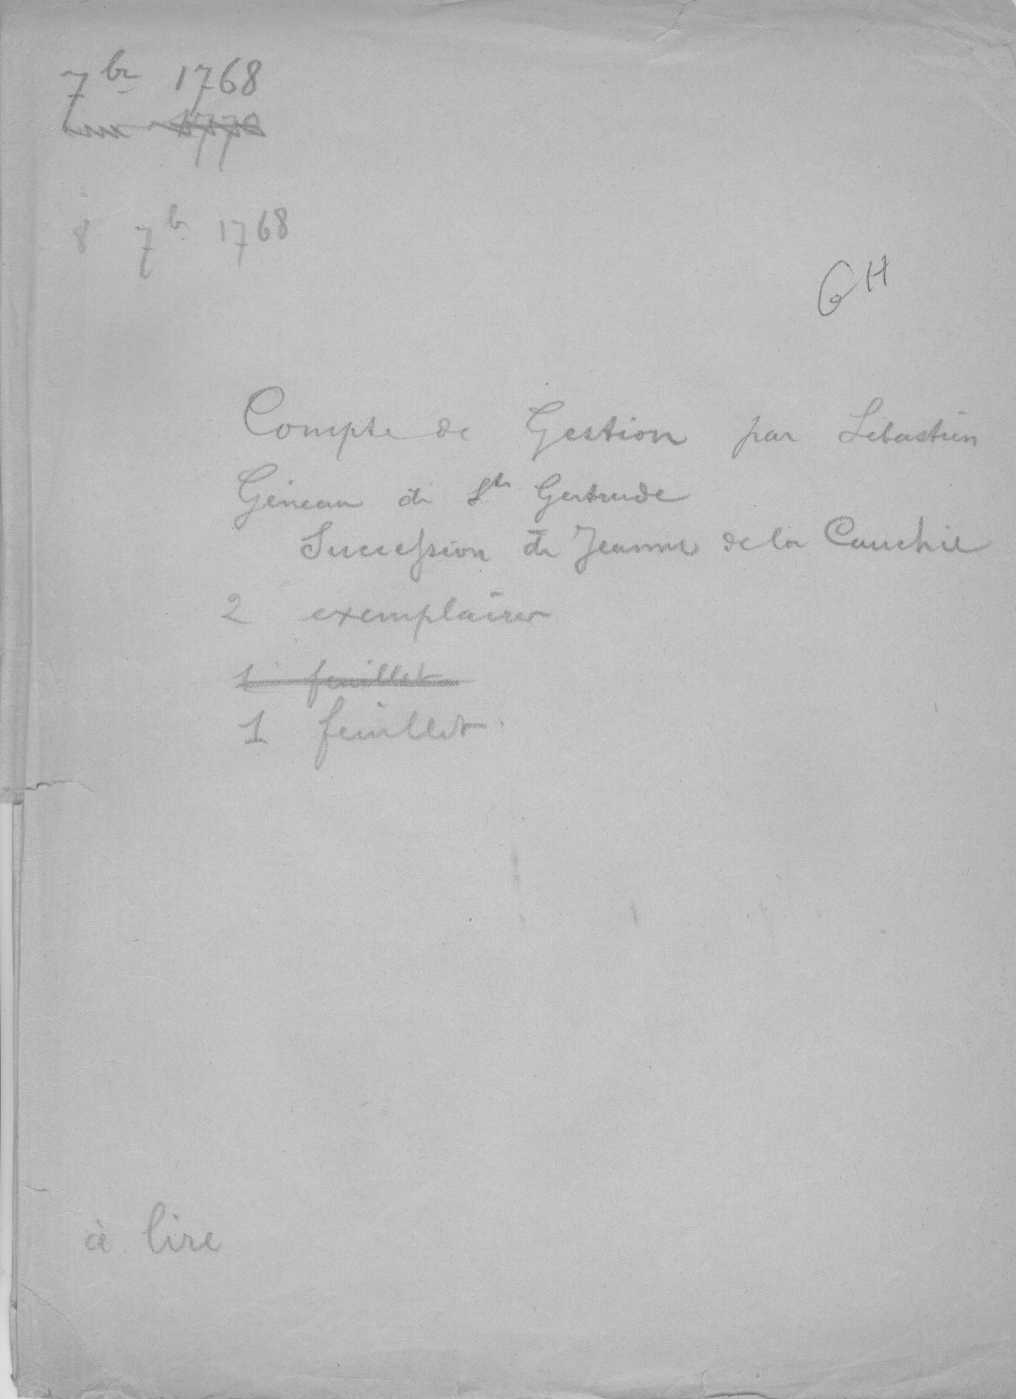 7br 1768
1770
8 7b 1768
GH
Compte de Gestion par Sébastien
Géneau de Ste Gertrude
Succession de Jeanne de la Cauchie
2 exemplaires
1 feuillet
1 feuillet
à lire